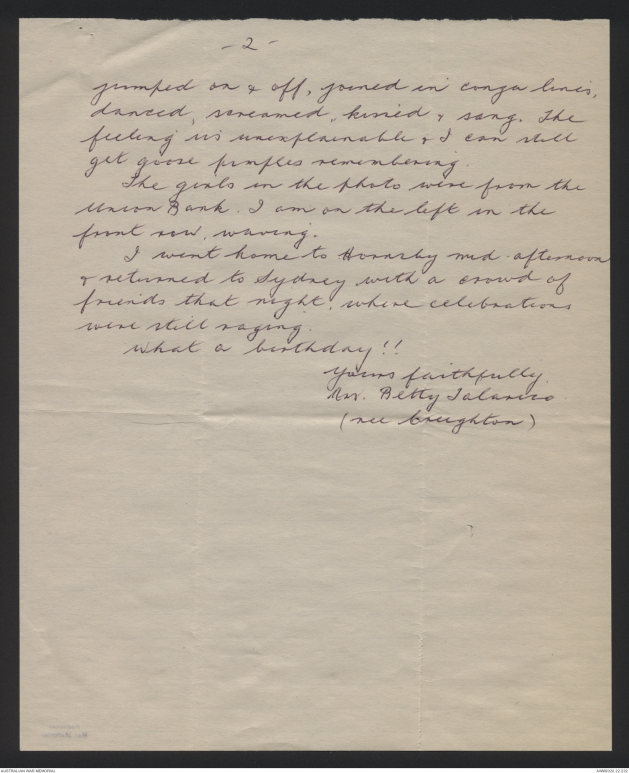 - 2 -
jumped on & off, joined in conga lines,
danced, screamed, kissed & sang. The
feeling is unexplainable & I can still
get goose pimples remembering.
The girls in the photo were from the
Union Bank. I am on the left in the
front row, waving.
I went home to Hornsby mid-afternoon
& returned to Sydney with a crowd of
friends that night, where celebrations
were still raging.
What a birthday!!
Yours faithfully,
Mrs. Betty
(nee Creighton)
AUSTRALIAN WAR MEMORIAL